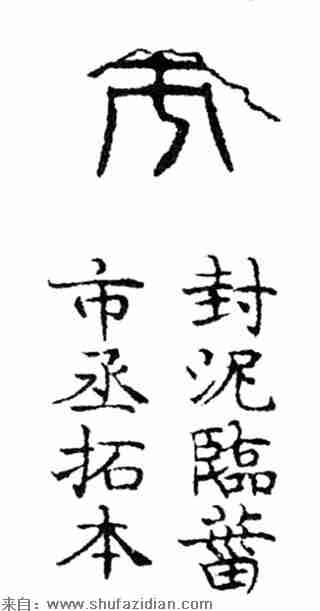 市
封泥臨菑
市丞拓本
来自：www.shufazidian.com